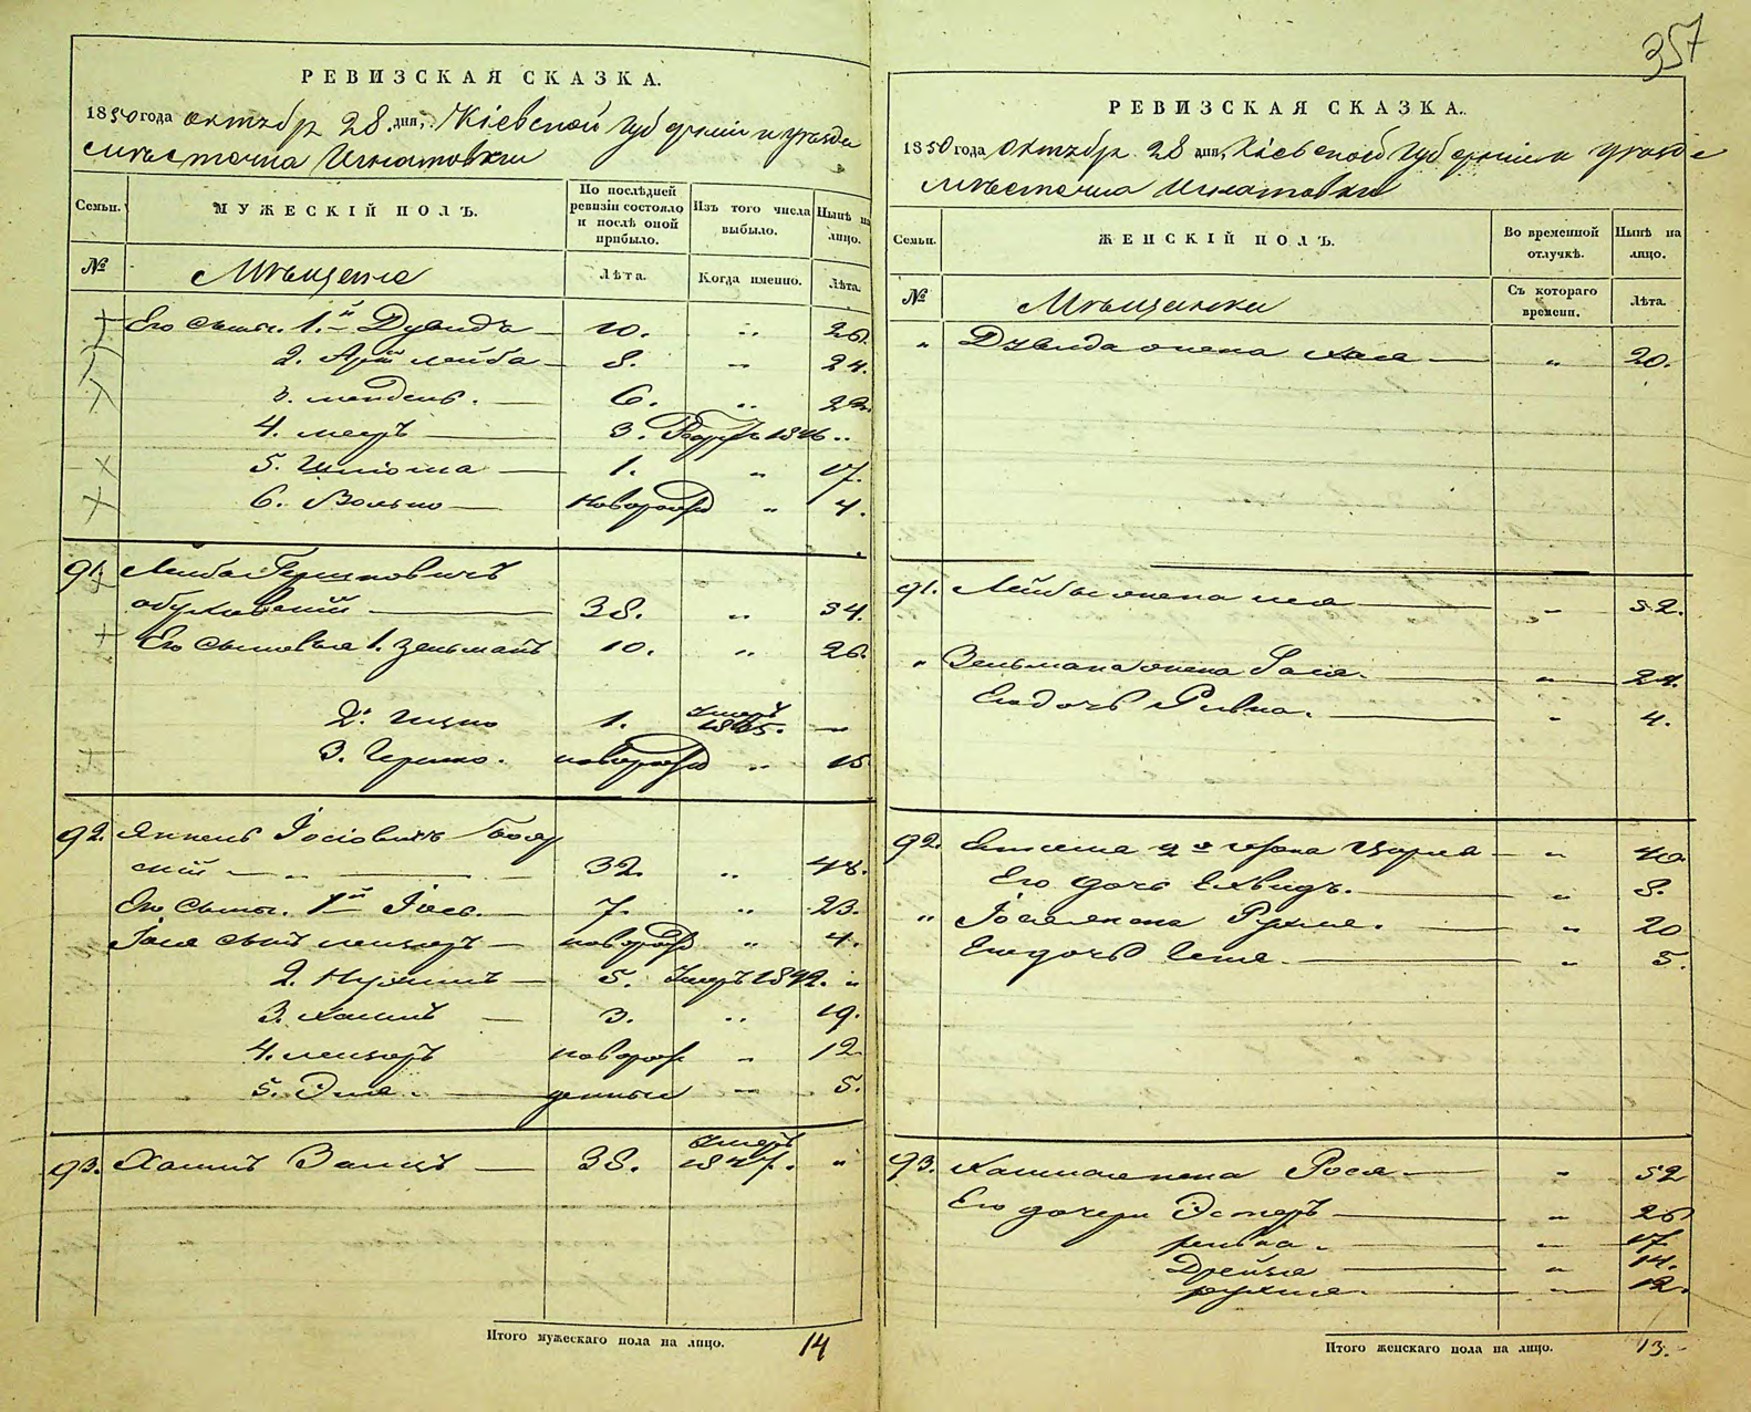 357
РЕВИЗСКАЯ СКАЗКА.
1850 года октябр 28 дня, Кіевской губерніи и уезда
местечка Игнатовки
Семьи.
МУЖЕСКІЙ ПОЛЪ.
По послѣдней ревизіи состояло и послѣ оной прибыло.
Изъ того числа выбыло.
Нынѣ на лицо.
№
Мещане
Лѣта.
Когда именно.
Лѣта.
Его сынов. 1.й Дувидъ 10. " 26.
2. Арій лейба 8. " 24.
3. мендель. 6. " 22.
4. 3. 1846 "
5. Шліома 1. " 17.
6. Волько новорожд " 4.
91. Лейба Гершковичъ
обуховский 38. " 54.
Его сыновья 1. Зельманъ 10. " 26.
2. Ицко 1. умеръ 1845. "
3. Гершко. новорожд " 15
92. Янкель Іосіовичъ
ский 32. " 48.
Его сынов. 1й Іось. 7. " 23.
Іося сынъ новорожд " 4.
2. Нухимъ 5. умеръ 1842. "
3. хаимъ 3. " 19.
4. новорож " 12.
5. Эля денныи " 5.
93. Хаимъ Заецъ 38. умеръ 1847. "
Итого мужескаго пола на лицо. 14
РЕВИЗСКАЯ СКАЗКА.
1850 года октябр 28 дня, Кіевской губерніи и уезда
местечка Игнатовки
Семьи.
ЖЕНСКІЙ ПОЛЪ.
Во временной отлучкѣ.
Нынѣ на лицо.
№
Мещанки
Съ котораго времени.
Лѣта.
" Дувида жена хая " 20.
91. Лейбы жена лея " 52.
" Зельмана жена Бася. " 24.
Его дочь Ривка. " 4.
92. Янкеля 2я жена " 40
Его дочь " 8.
" Іося жена Рухля. " 20
Его дочь " 5.
93. Хаима жена Рося " 52
Его дочери Эстеръ " 26
ривка. " 17.
Дрейзя " 14.
рухля. " 12.
Итого женскаго пола на лицо. 13.